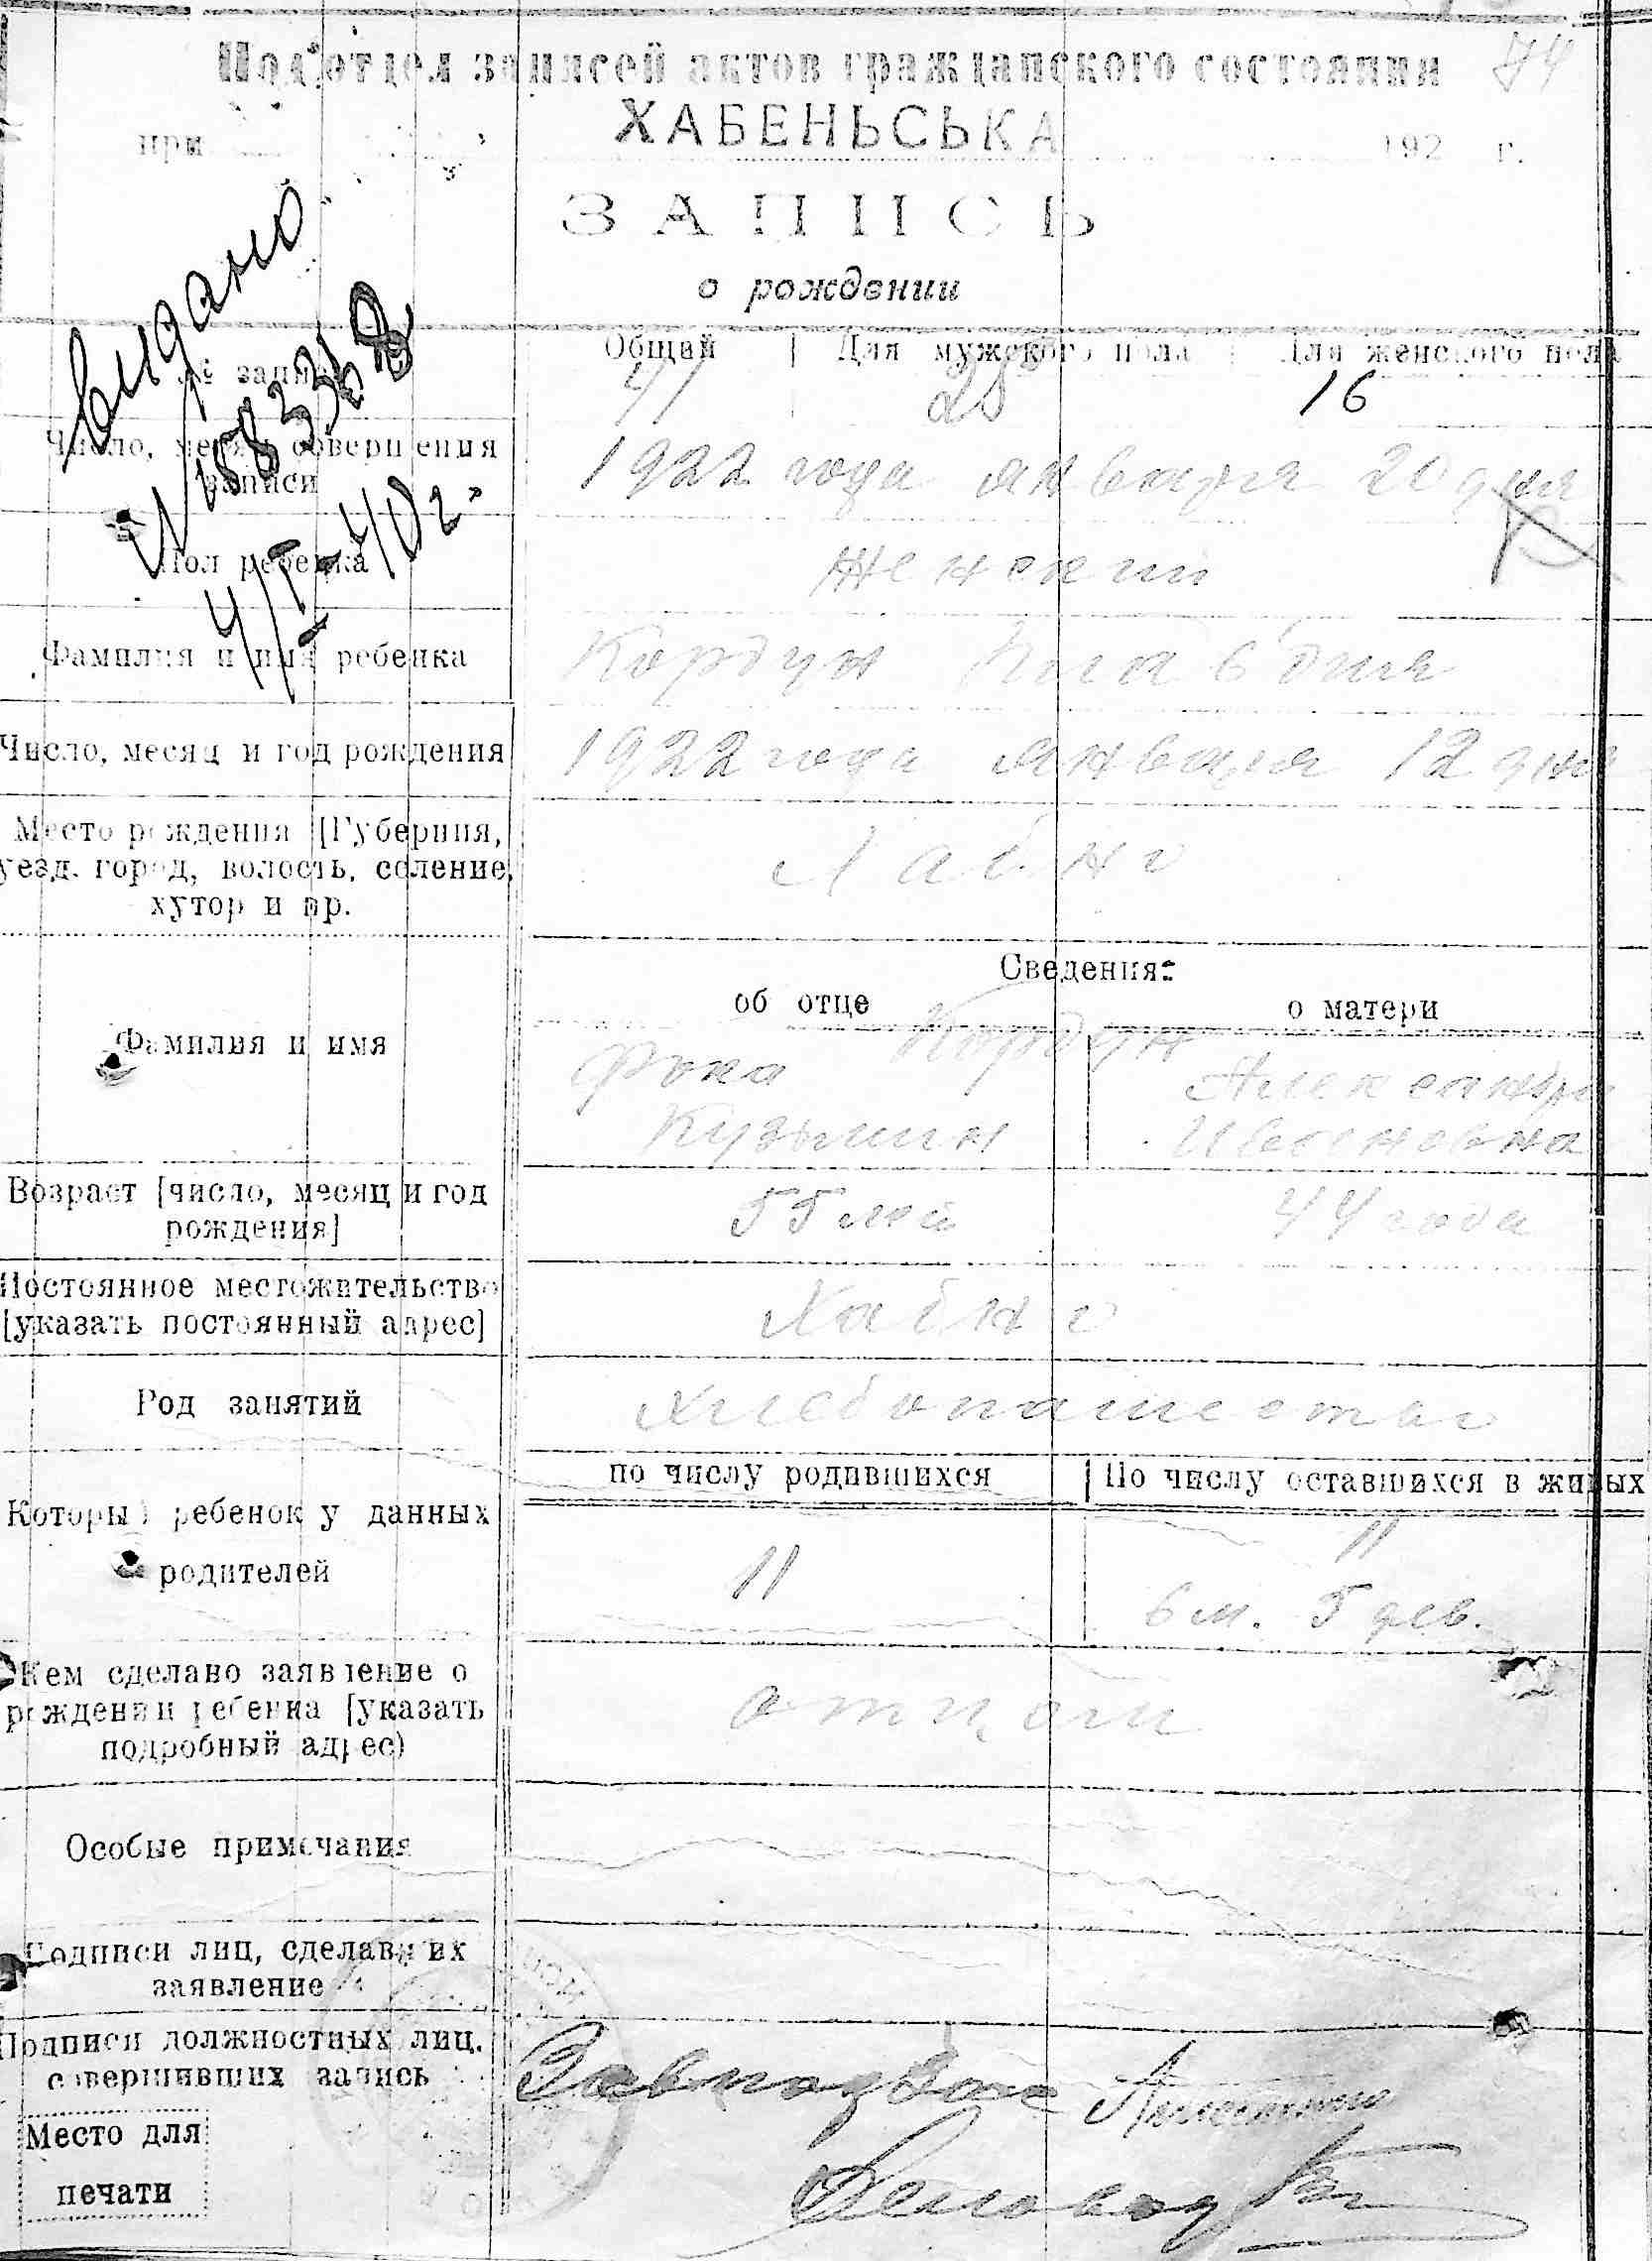 Подотдел записей актов гражданского состояния 74
ХАБЕНЬСЬКА
при 192 г.
ЗАПИСЬ
о рождении
видано
4/I-40г.
Общий | Для мужского пола | Для женского пола
№ записи 41 25 16
Число, месяц совершения
записи 1922 года января 20 дня
Пол ребенка женский
Фамилия и имя ребенка Кордун Клавдия
Число, месяц и год рождения 1922 года января 12 дня
Место рождения [Губерния,
уезд. город, волость, селение, Хабно
хутор и пр.
Сведения:
об отце о матери
Кордун
Фамилия и имя Фока Александра
Кузьмин Ивановна
Возраст [число, месяц и год 55 лет 44 года
рождения]
Постоянное местожительство
[указать постоянный адрес] Хабно
Род занятий хлебопашество
по числу родившихся | По числу оставшихся в живых
Который ребенок у данных 11 11
родителей 6 м. 5 дев.
Кем сделано заявление о
рождении ребенка [указать отцом
подробный адрес)
Особые примечания
Подписи лиц, сделавших
заявление
Подписи должностных лиц,
совершивших запись
Место для
печати